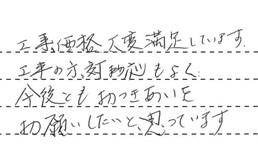 工事、価格、大変満足しています。
工事の方、対応もよく、
今後ともおつきあいを
お願いしたいと、思っています